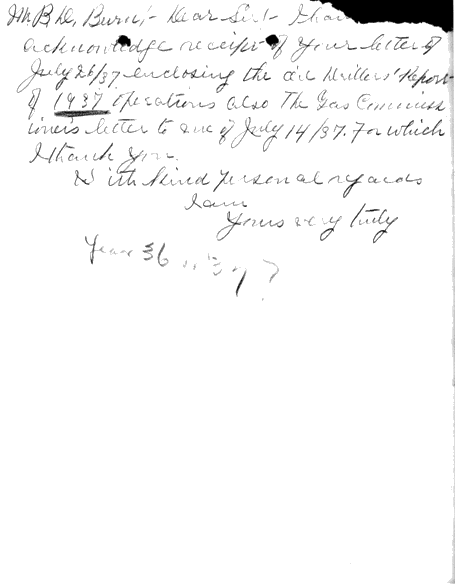 Mr B W, Burn,:- Dear Sir:- I have
acknowledge receipt of your letter of
July 26/37 enclosing the Oil Drillers' Report
of 1937 operations also The Gas Commiss
ioners letter to me of July 14/37. For which
I thank you.
With kind personal regards
I am
Yours very truly
Year 36 or 37?